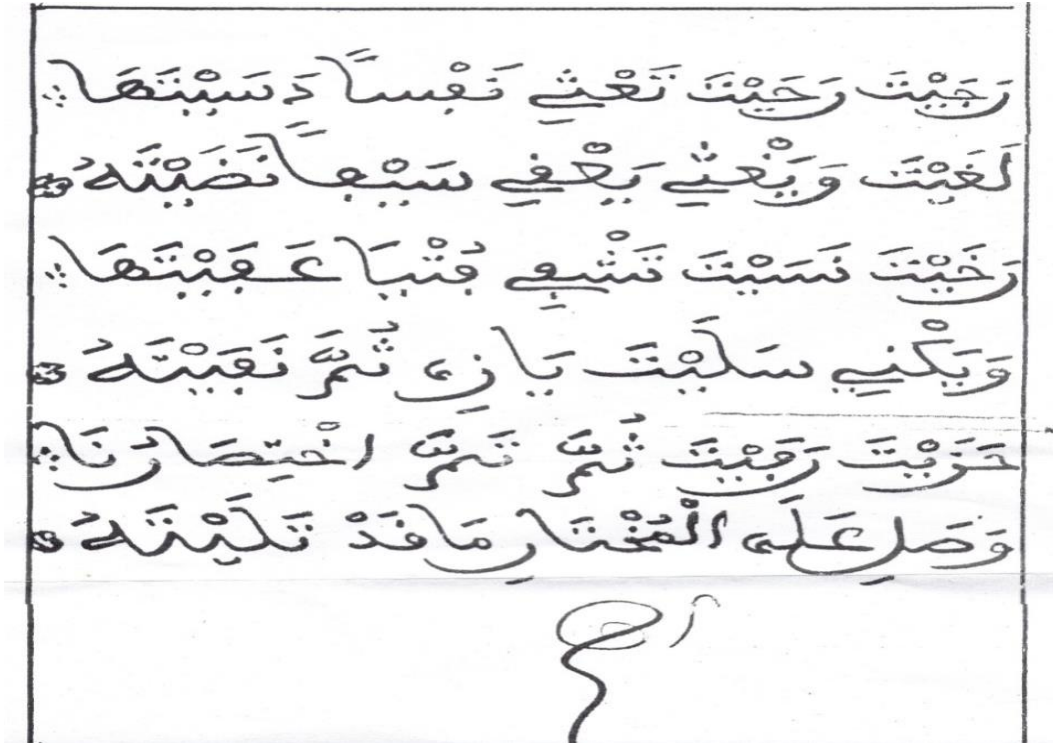 رَجَيْتَ رَحَيْتَ تَعْثِي نَفْساً دَسَيْتَهَا
لَغَيْتَ وَيَغْثِي يَعْفِي سَيْفاً نَضَيْتَهُ
رَخَيْتَ نَسَيْتَ تَشْفِي فُتْيَا عَفَيْتَهَا
وَيَكْنِي سَلَيْتَ يَا زِى ثُمَّ نَفَيْتَهُ
حَزَيْتَ رَفَيْتَ ثُمَّ تَمَّ اخْتِصَارُنَا
وَصَلِ عَلَى الْمُخْتَارِ مَا قَدْ تَلَيْتَهُ